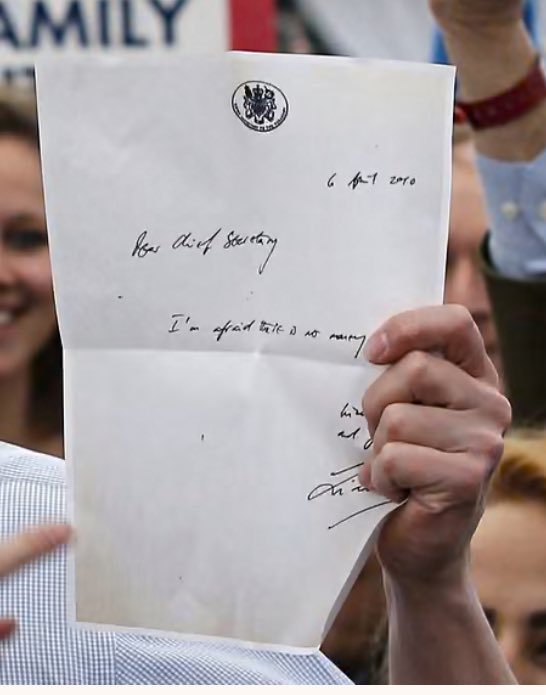 AMILY
6 April 2010
Dear Chief Secretary
I'm afraid there is no money